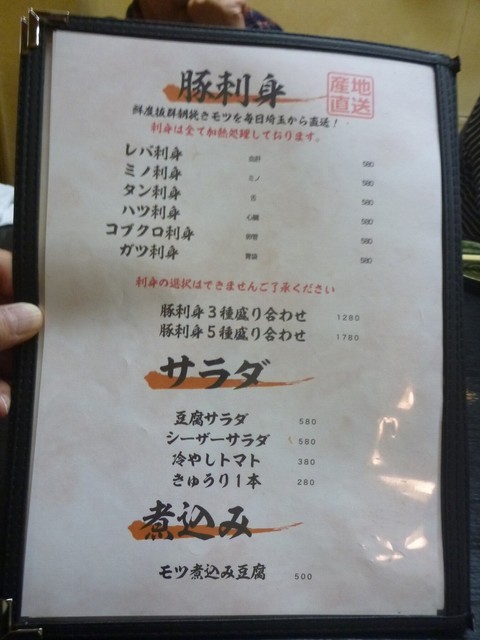 豚刺身
産地
直送
鮮度抜群朝挽きモツを毎日埼玉から直送！
刺身は全て加熱処理しております。
レバ刺身 580
ミノ刺身 ミノ 580
タン刺身 舌 580
ハツ刺身 心臓 580
コブクロ刺身 580
ガツ刺身 胃袋 580
刺身の選択はできませんご了承ください
豚刺身３種盛り合わせ 1280
豚刺身５種盛り合わせ 1780
サラダ
豆腐サラダ 580
シーザーサラダ 580
冷やしトマト 380
きゅうり１本 280
煮込み
モツ煮込み豆腐 500